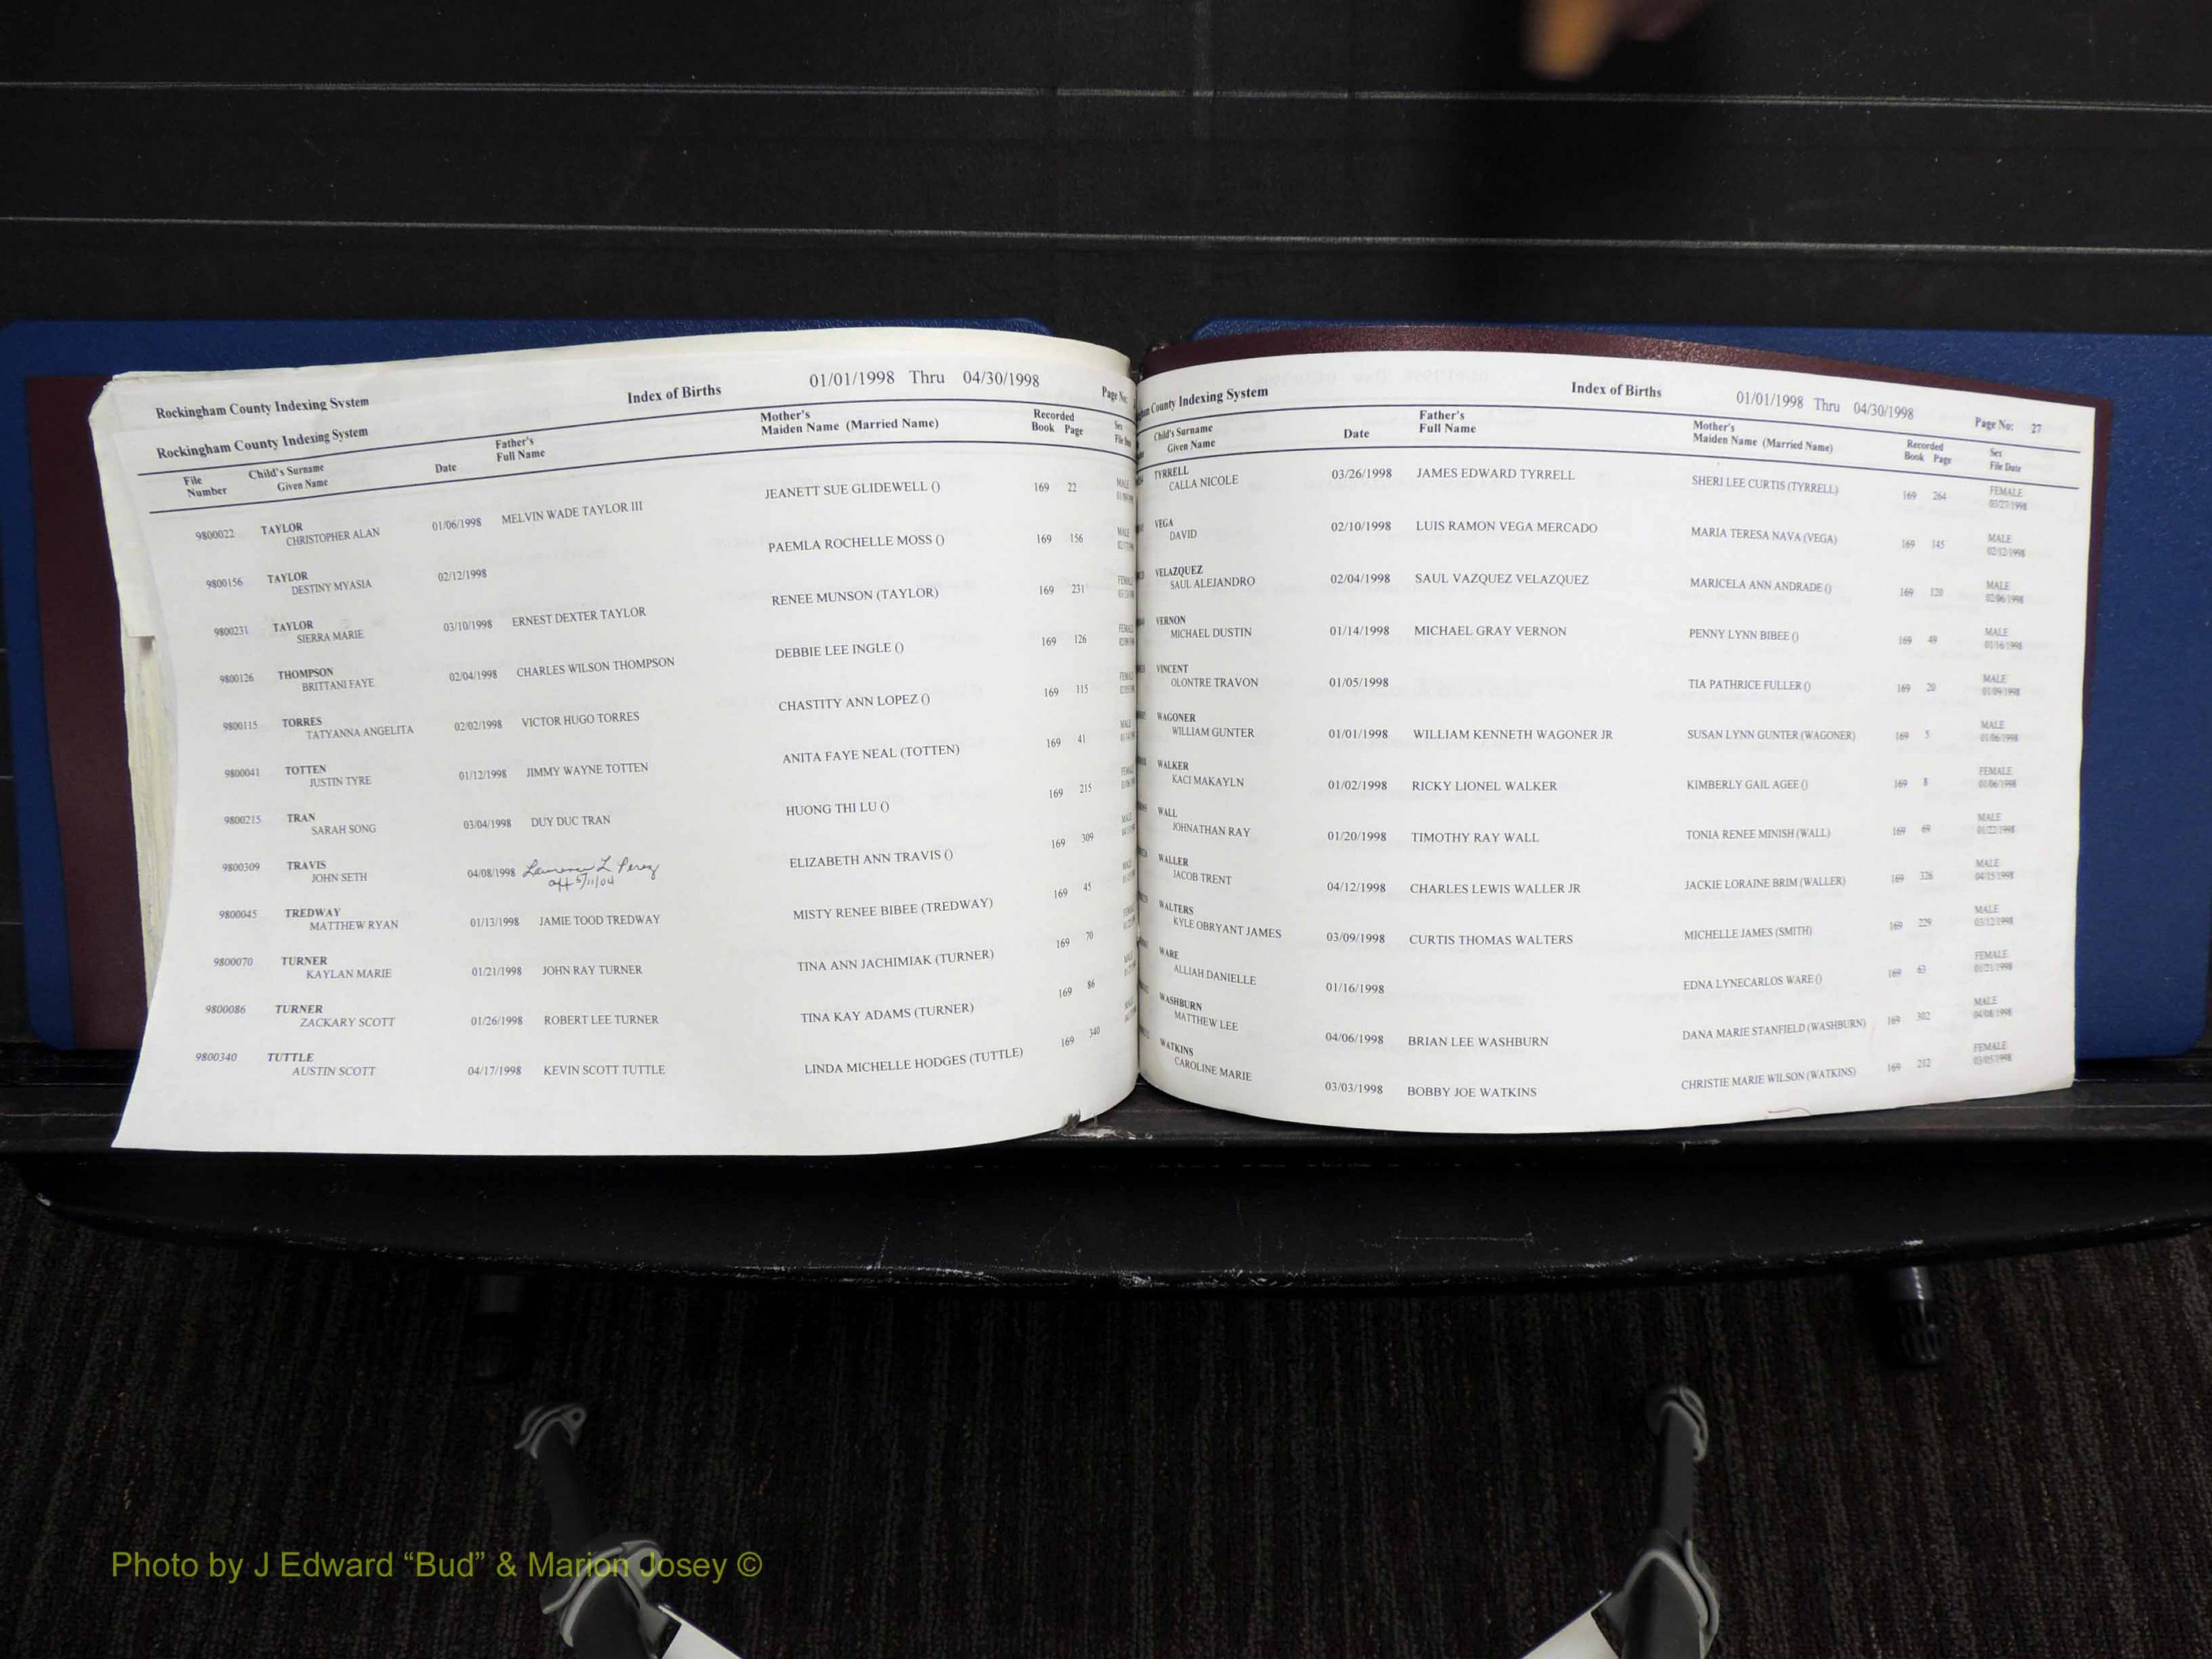 Rockingham County Indexing System
Index of Births
01/01/1998 Thru 04/30/1998
Page No:
Rockingham County Indexing System
File Number
Child's Surname Given Name
Date
Father's Full Name
Mother's Maiden Name (Married Name)
Recorded Book Page
Sex
9800022 TAYLOR 01/06/1998 MELVIN WADE TAYLOR III JEANETT SUE GLIDEWELL () 169 22 MALE
CHRISTOPHER ALAN
9800156 TAYLOR 02/12/1998 PAEMLA ROCHELLE MOSS () 169 156 MALE
DESTINY MYASIA
9800231 TAYLOR 03/10/1998 ERNEST DEXTER TAYLOR RENEE MUNSON (TAYLOR) 169 231
SIERRA MARIE
9800126 THOMPSON 02/04/1998 CHARLES WILSON THOMPSON DEBBIE LEE INGLE () 169 126
BRITTANI FAYE
9800115 TORRES 02/02/1998 VICTOR HUGO TORRES CHASTITY ANN LOPEZ () 169 115
TATYANNA ANGELITA
9800041 TOTTEN 01/12/1998 JIMMY WAYNE TOTTEN ANITA FAYE NEAL (TOTTEN) 169 41
JUSTIN TYRE
9800215 TRAN 03/04/1998 DUY DUC TRAN HUONG THI LU () 169 215
SARAH SONG
9800309 TRAVIS 04/08/1998 Lawrence L Perez ELIZABETH ANN TRAVIS () 169 309
JOHN SETH aff 5/11/04
9800045 TREDWAY 01/13/1998 JAMIE TOOD TREDWAY MISTY RENEE BIBEE (TREDWAY) 169 45
MATTHEW RYAN
9800070 TURNER 01/21/1998 JOHN RAY TURNER TINA ANN JACHIMIAK (TURNER) 169 70
KAYLAN MARIE
9800086 TURNER 01/26/1998 ROBERT LEE TURNER TINA KAY ADAMS (TURNER) 169 86
ZACKARY SCOTT
9800340 TUTTLE 04/17/1998 KEVIN SCOTT TUTTLE LINDA MICHELLE HODGES (TUTTLE) 169 340
AUSTIN SCOTT
County Indexing System
Index of Births
01/01/1998 Thru 04/30/1998
Page No: 27
Child's Surname Given Name
Date
Father's Full Name
Mother's Maiden Name (Married Name)
Recorded Book Page
Sex File Date
TYRRELL 03/26/1998 JAMES EDWARD TYRRELL SHERI LEE CURTIS (TYRRELL) 169 264 FEMALE
CALLA NICOLE 03/27/1998
VEGA 02/10/1998 LUIS RAMON VEGA MERCADO MARIA TERESA NAVA (VEGA) 169 145 MALE
DAVID 02/12/1998
VELAZQUEZ 02/04/1998 SAUL VAZQUEZ VELAZQUEZ MARICELA ANN ANDRADE () 169 120 MALE
SAUL ALEJANDRO 02/06/1998
VERNON 01/14/1998 MICHAEL GRAY VERNON PENNY LYNN BIBEE () 169 49 MALE
MICHAEL DUSTIN 01/16/1998
VINCENT 01/05/1998 TIA PATHRICE FULLER () 169 20 MALE
OLONTRE TRAVON 01/09/1998
WAGONER 01/01/1998 WILLIAM KENNETH WAGONER JR SUSAN LYNN GUNTER (WAGONER) 169 5 MALE
WILLIAM GUNTER 01/06/1998
WALKER 01/02/1998 RICKY LIONEL WALKER KIMBERLY GAIL AGEE () 169 8 FEMALE
KACI MAKAYLN 01/06/1998
WALL 01/20/1998 TIMOTHY RAY WALL TONIA RENEE MINISH (WALL) 169 69 MALE
JOHNATHAN RAY 01/22/1998
WALLER 04/12/1998 CHARLES LEWIS WALLER JR JACKIE LORAINE BRIM (WALLER) 169 326 MALE
JACOB TRENT 04/15/1998
WALTERS 03/09/1998 CURTIS THOMAS WALTERS MICHELLE JAMES (SMITH) 169 229 MALE
KYLE OBRYANT JAMES 03/12/1998
WARE 01/16/1998 EDNA LYNECARLOS WARE () 169 63 FEMALE
ALLIAH DANIELLE 01/21/1998
WASHBURN 04/06/1998 BRIAN LEE WASHBURN DANA MARIE STANFIELD (WASHBURN) 169 302 MALE
MATTHEW LEE 04/08/1998
WATKINS 03/03/1998 BOBBY JOE WATKINS CHRISTIE MARIE WILSON (WATKINS) 169 212 FEMALE
CAROLINE MARIE 03/05/1998
Photo by J Edward “Bud” & Marion Josey ©